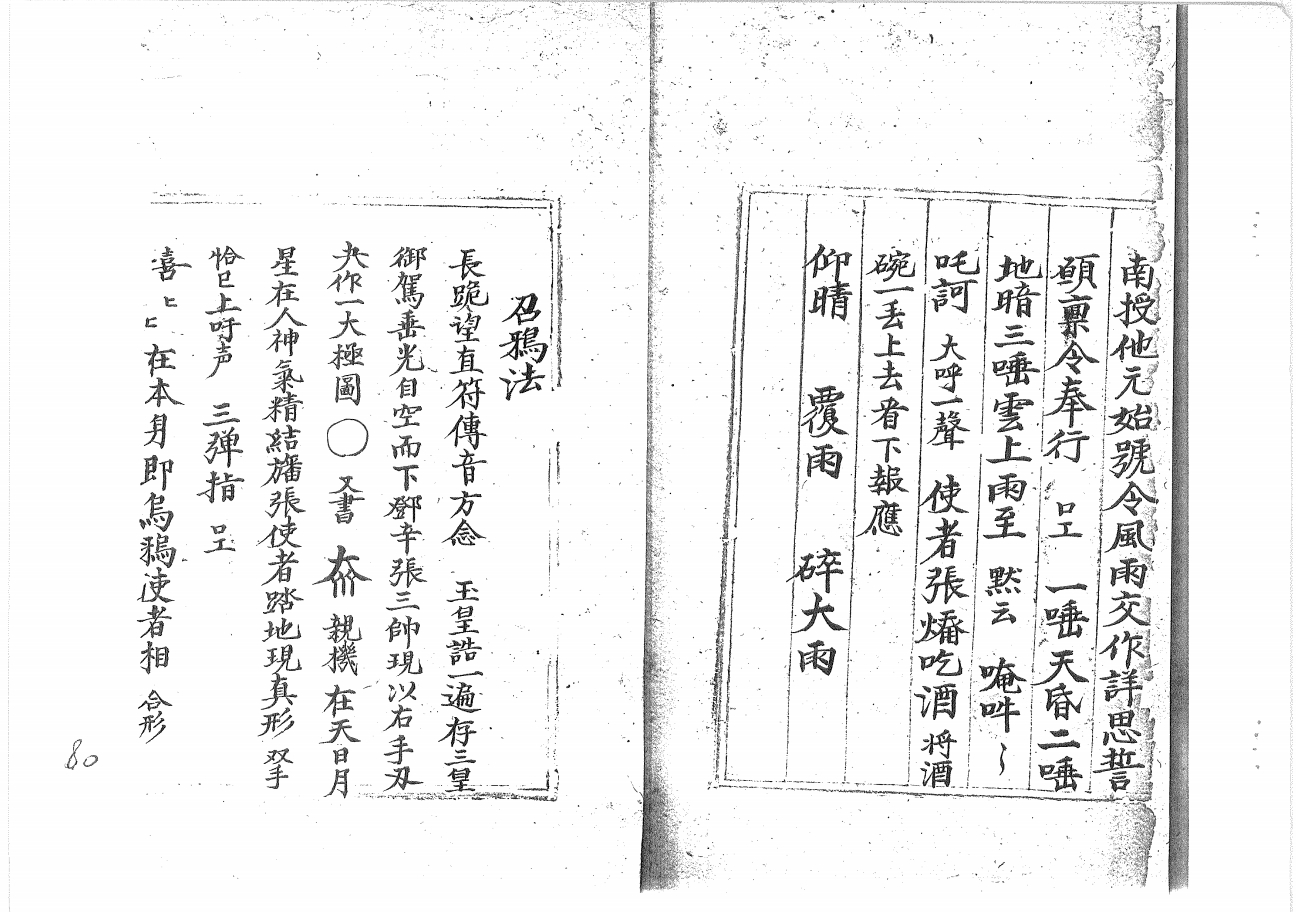 南授他元始號令風雨交作詳思誓
頥稟令奉行 𠮨 一唾天昏二唾
地暗三唾雲上雨至 黙云 唵吽〻
吒訶 大呼一聲 使者張燔吃酒 将酒
碗一丟上去看下報應
仰晴 覆雨 碎大雨
召鴉法
長跪望直符傳音方念 玉皇誥一遍存三皇
御駕垂光自空而下鄧辛張三帥現以右手刃
夬作一大極圖〇 又書 親機在天日月
星在人神氣精結旛張使者踏地現真形 双手
恰巳上吁声 三弹指 𠮨
喜〻〻在本身即烏鴉使者相 合形
80